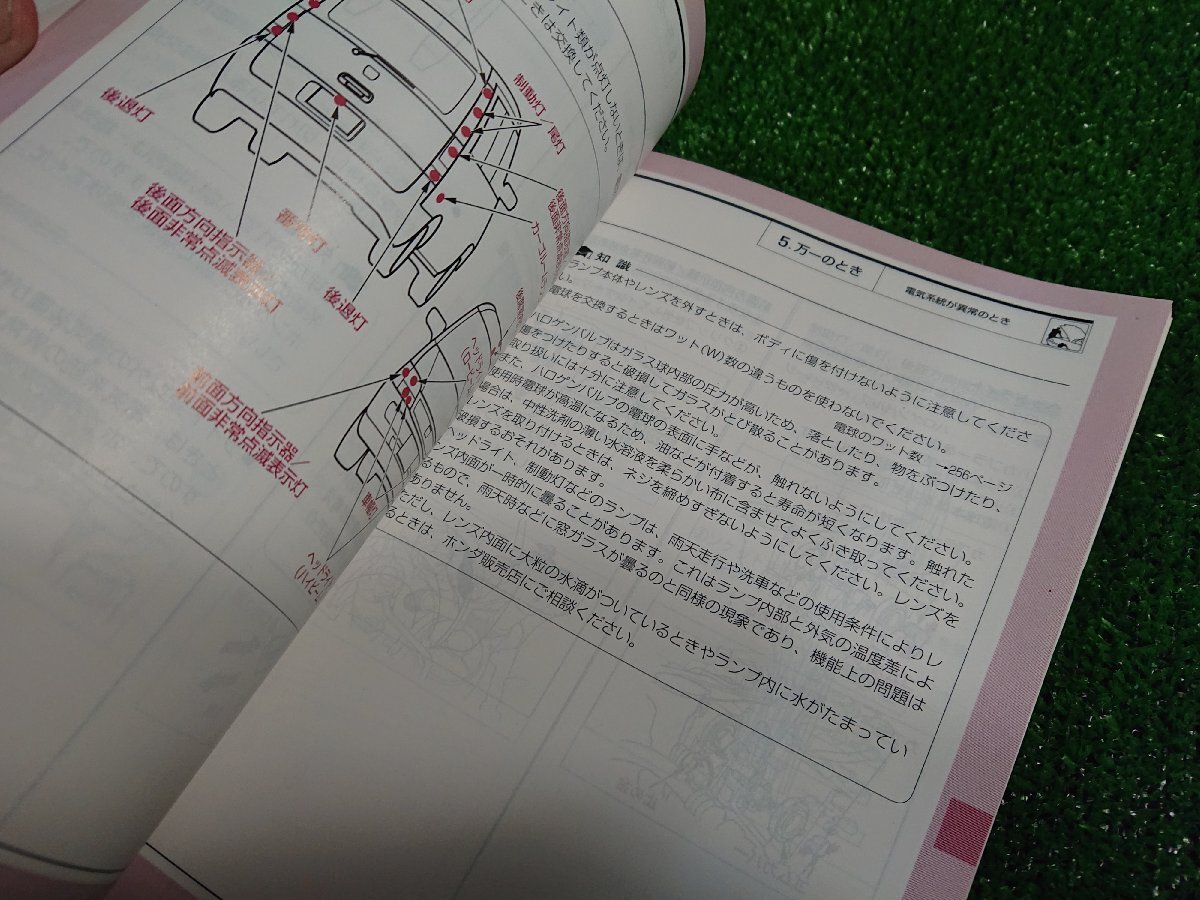 イト類が点灯しないときは
ときは交換してください。
制動灯/尾灯
後退灯
後面方向指示器/
後面非常点滅表示灯
後退灯
前面方向指示器/
前面非常点滅表示灯
5.万一のとき
電気系統が異常のとき
知識
ランプ本体やレンズを外すときは、ボディに傷を付けないように注意してくださ
い。
電球を交換するときはワット(W)数の違うものを使わないでください。
電球のワット数 →256ページ
ハロゲンバルブはガラス球内部の圧力が高いため、落としたり、物をぶつけたり、
傷をつけたりすると破損してガラスがとび散ることがあります。
取り扱いには十分に注意してください。
また、ハロゲンバルブの電球の表面に手などが、触れないようにしてください。
使用時電球が高温になるため、油などが付着すると寿命が短くなります。触れた
場合は、中性洗剤の薄い水溶液を柔らかい布に含ませてよくふき取ってください。
レンズを取り付けるときは、ネジを締めすぎないようにしてください。レンズを
破損するおそれがあります。
ヘッドライト、制動灯などのランプは、雨天走行や洗車などの使用条件によりレ
ンズ内面が一時的に曇ることがあります。これはランプ内部と外気の温度差によ
るもので、雨天時などに窓ガラスが曇るのと同様の現象であり、機能上の問題は
ありません。
ただし、レンズ内面に大粒の水滴がついているときやランプ内に水がたまってい
るときは、ホンダ販売店にご相談ください。